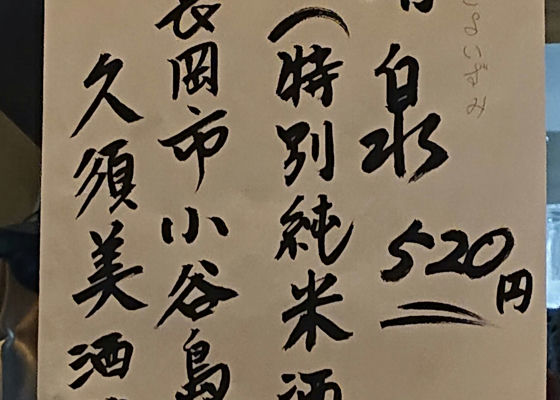 いずみ
泉 520円
(特別純米酒
長岡市小谷島
久須美酒